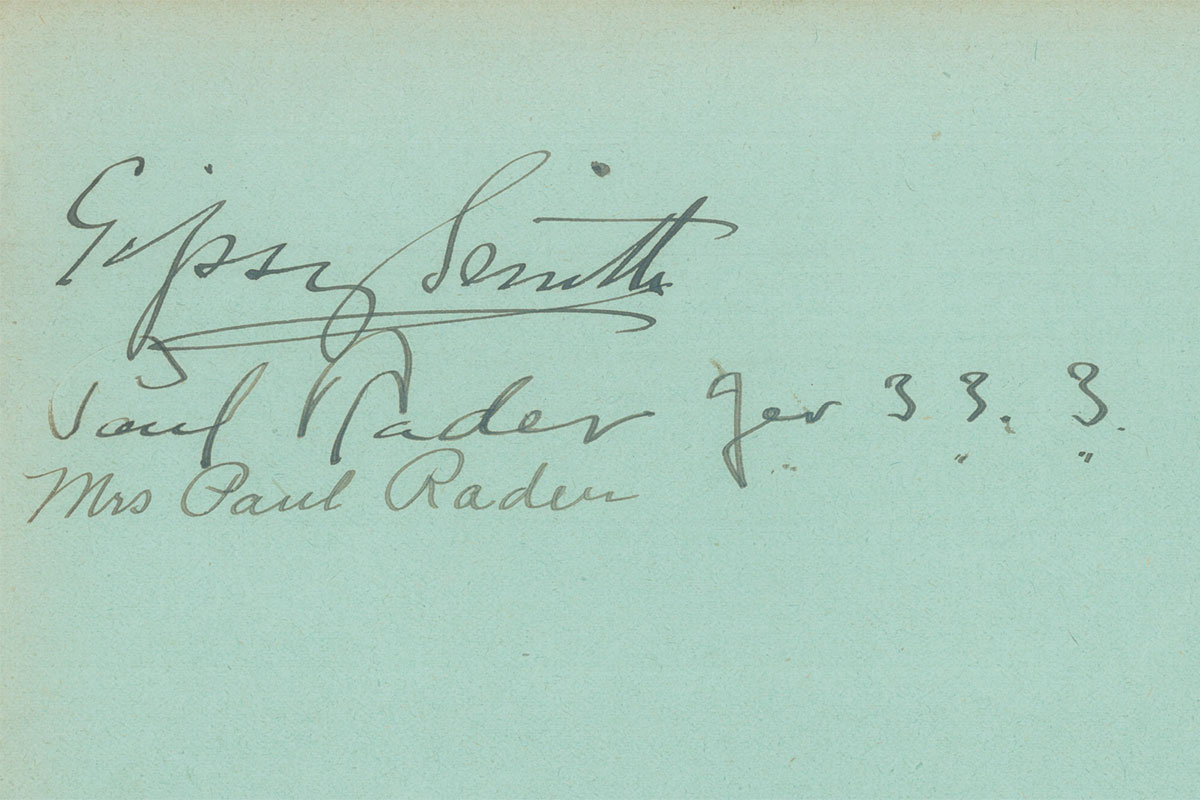 Gipsy Smith
Paul Rader Jer 33. 3.
Mrs Paul Rader
" " "